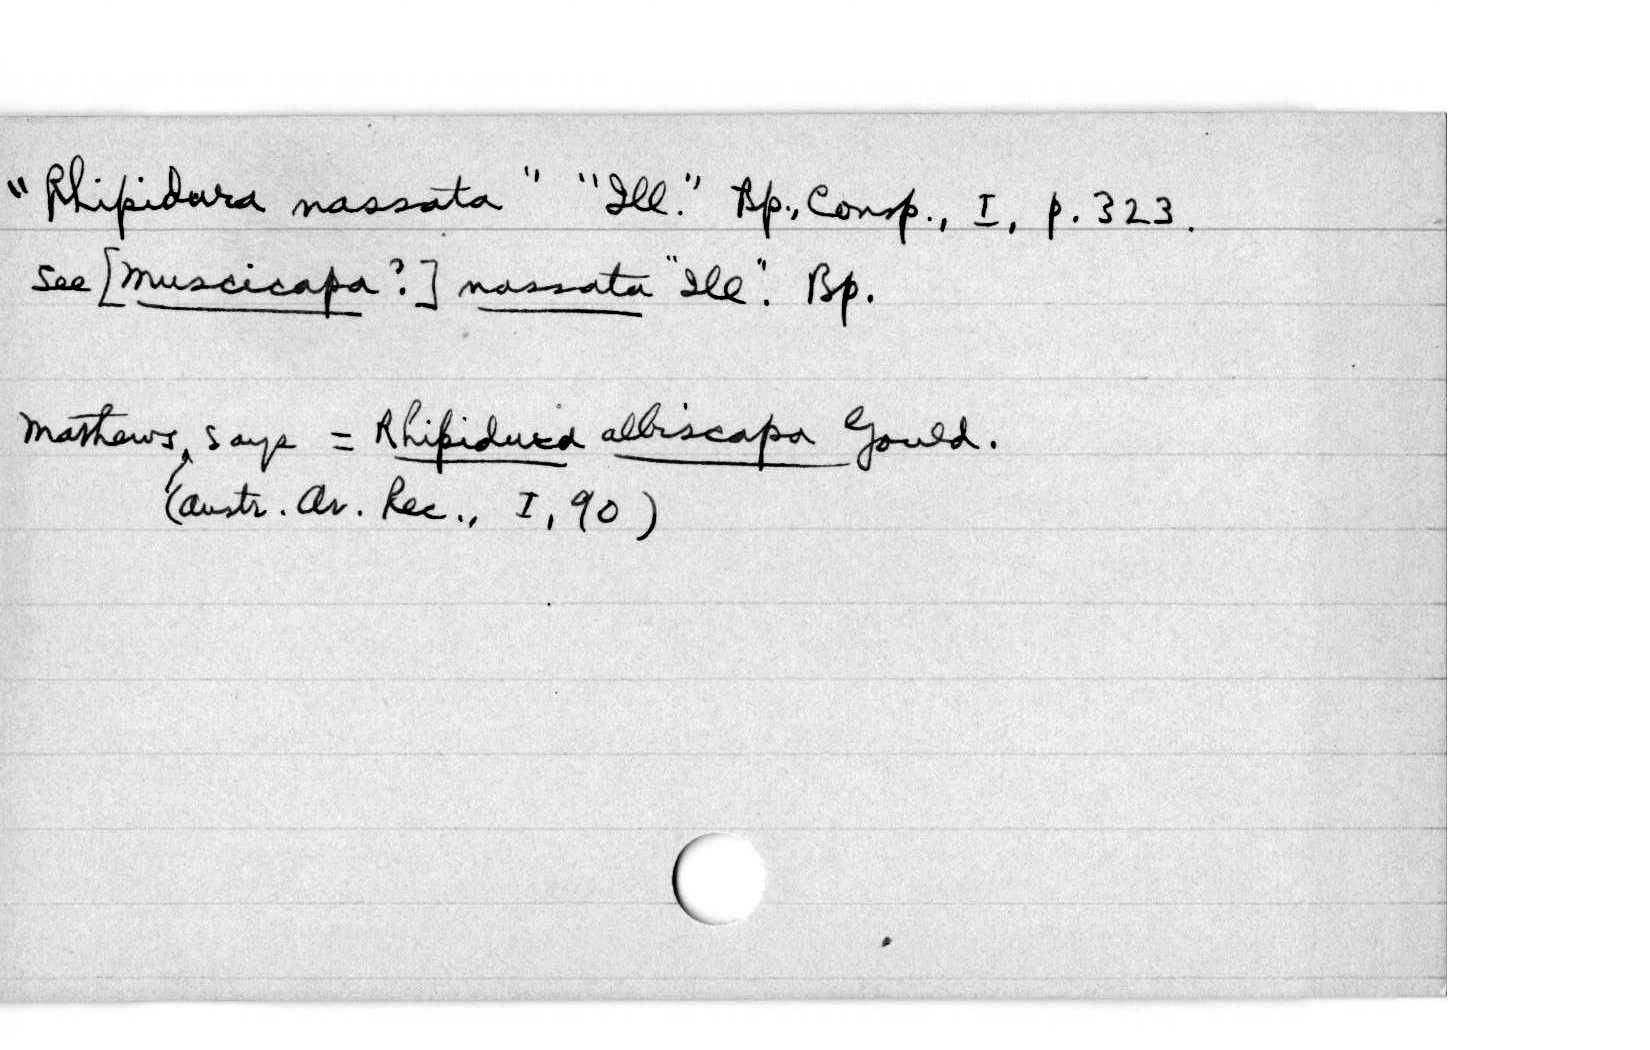 "Rhipidura nassata" "Ill." Bp., Consp., I, p. 323.
see [Muscicapa?] nassata "Ill". Bp.
Mathews, says = Rhipidura albiscapa Gould.
(Austr. Av. Rec., I, 90)